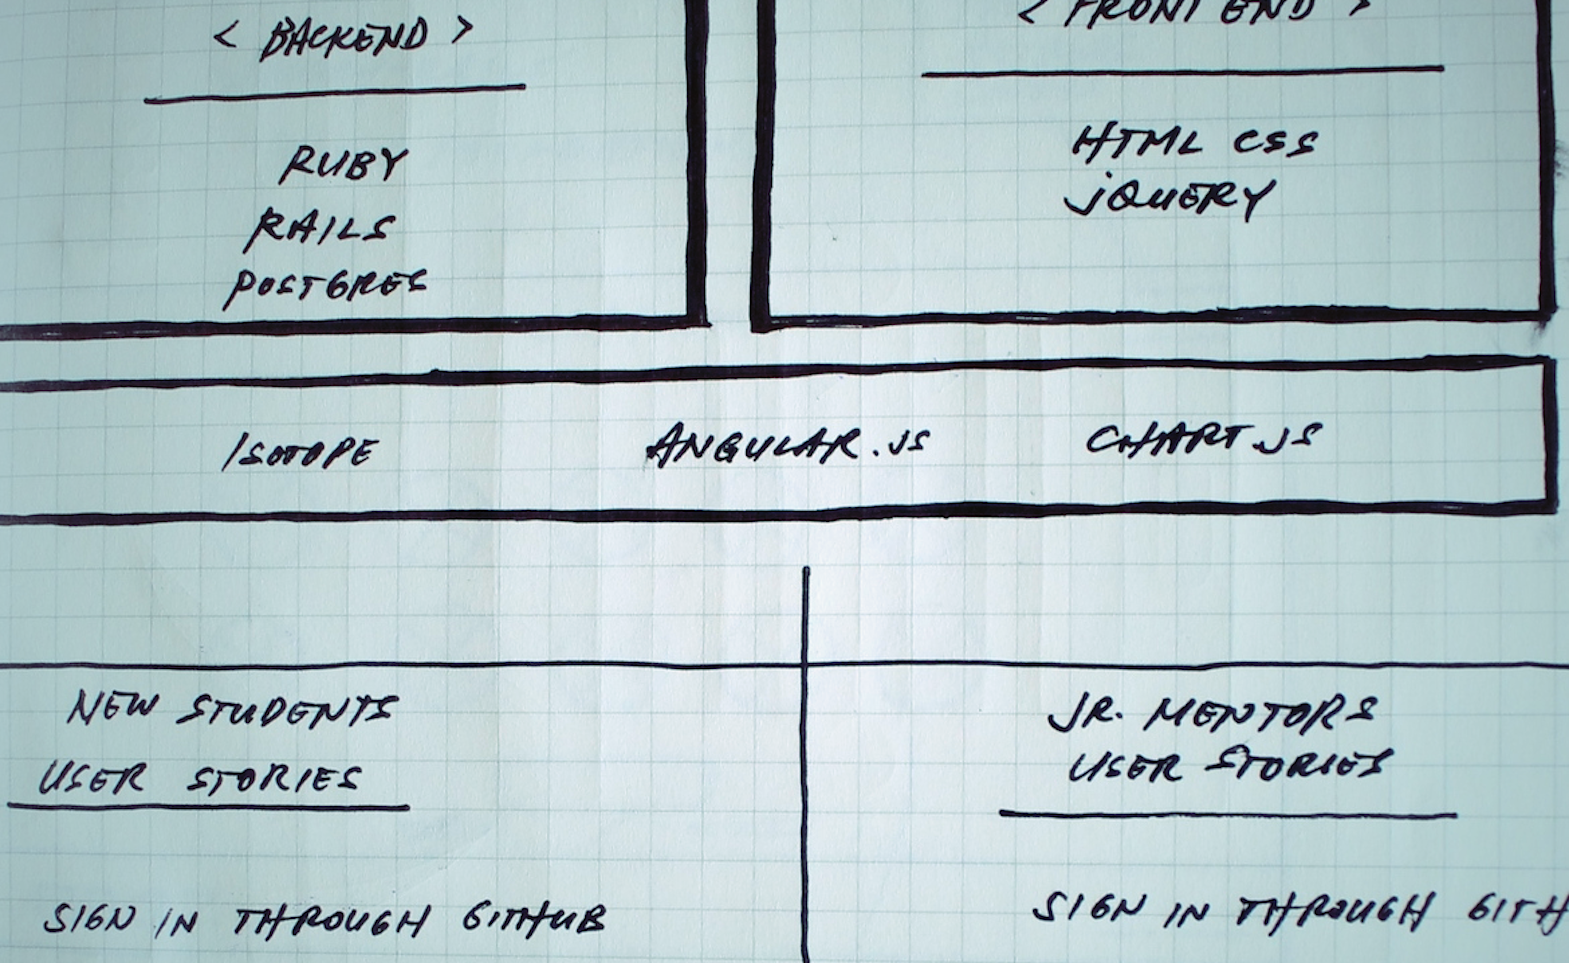 < BACKEND >
RUBY
RAILS
POSTGRES
< FRONT END >
HTML CSS
jQUERY
ISOTOPE ANGULAR.JS CHART.JS
NEW STUDENTS
USER STORIES
SIGN IN THROUGH GITHUB
JR. MENTORS
USER STORIES
SIGN IN THROUGH GITH